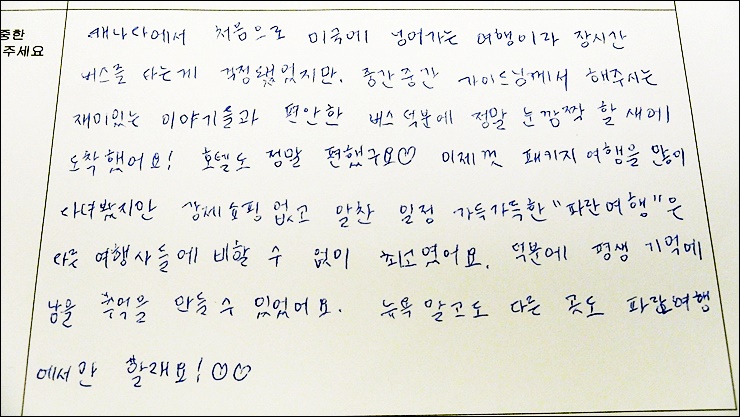 중한
주세요
캐나다에서 처음으로 미국에 넘어가는 여행이라 장시간
버스를 타는게 걱정됐었지만, 중간중간 가이드님께서 해주시는
재미있는 이야기들과 편안한 버스 덕분에 정말 눈 깜짝 할 새에
도착했어요! 호텔도 정말 편했구요♡ 이제껏 패키지 여행을 많이
다녀봤지만 강제쇼핑 없고 알찬 일정 가득가득한 "파란여행"은
다른 여행사들에 비할 수 없이 최고였어요. 덕분에 평생 기억에
남을 추억을 만들 수 있었어요. 뉴욕말고도 다른 곳도 파란여행
에서만 할래요! ♡♡